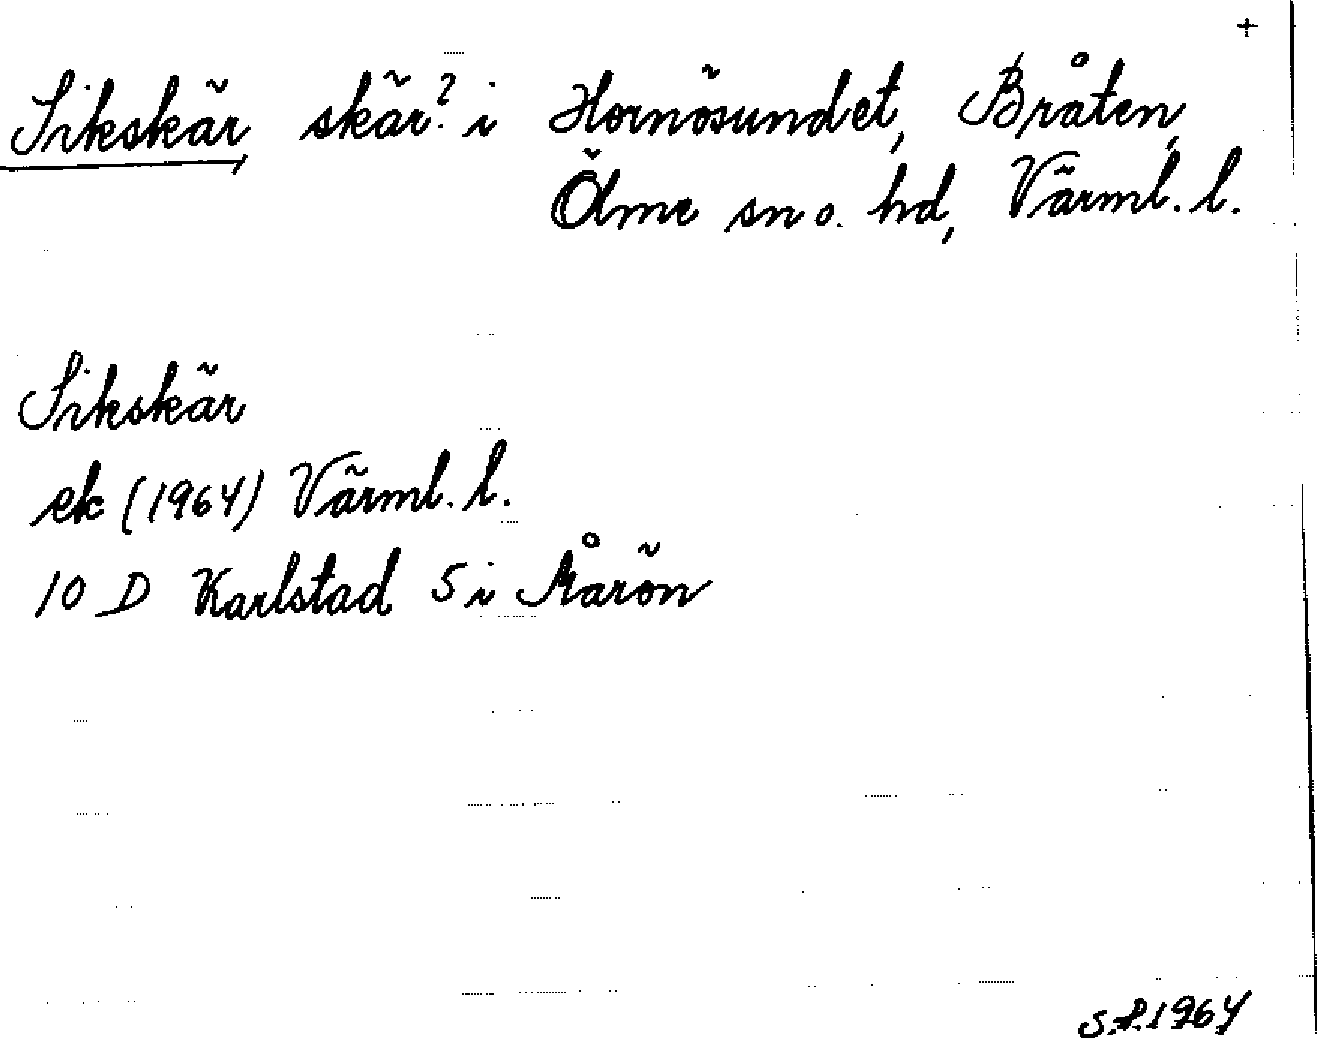 +
Sikskär skär? i Hornösundet, Bråten,
Ölme sn o. hd, Värml. l.
Sikskär
ek (1964) Värml. l.
10 D Karlstad 5 i Årön
S.P. 1964